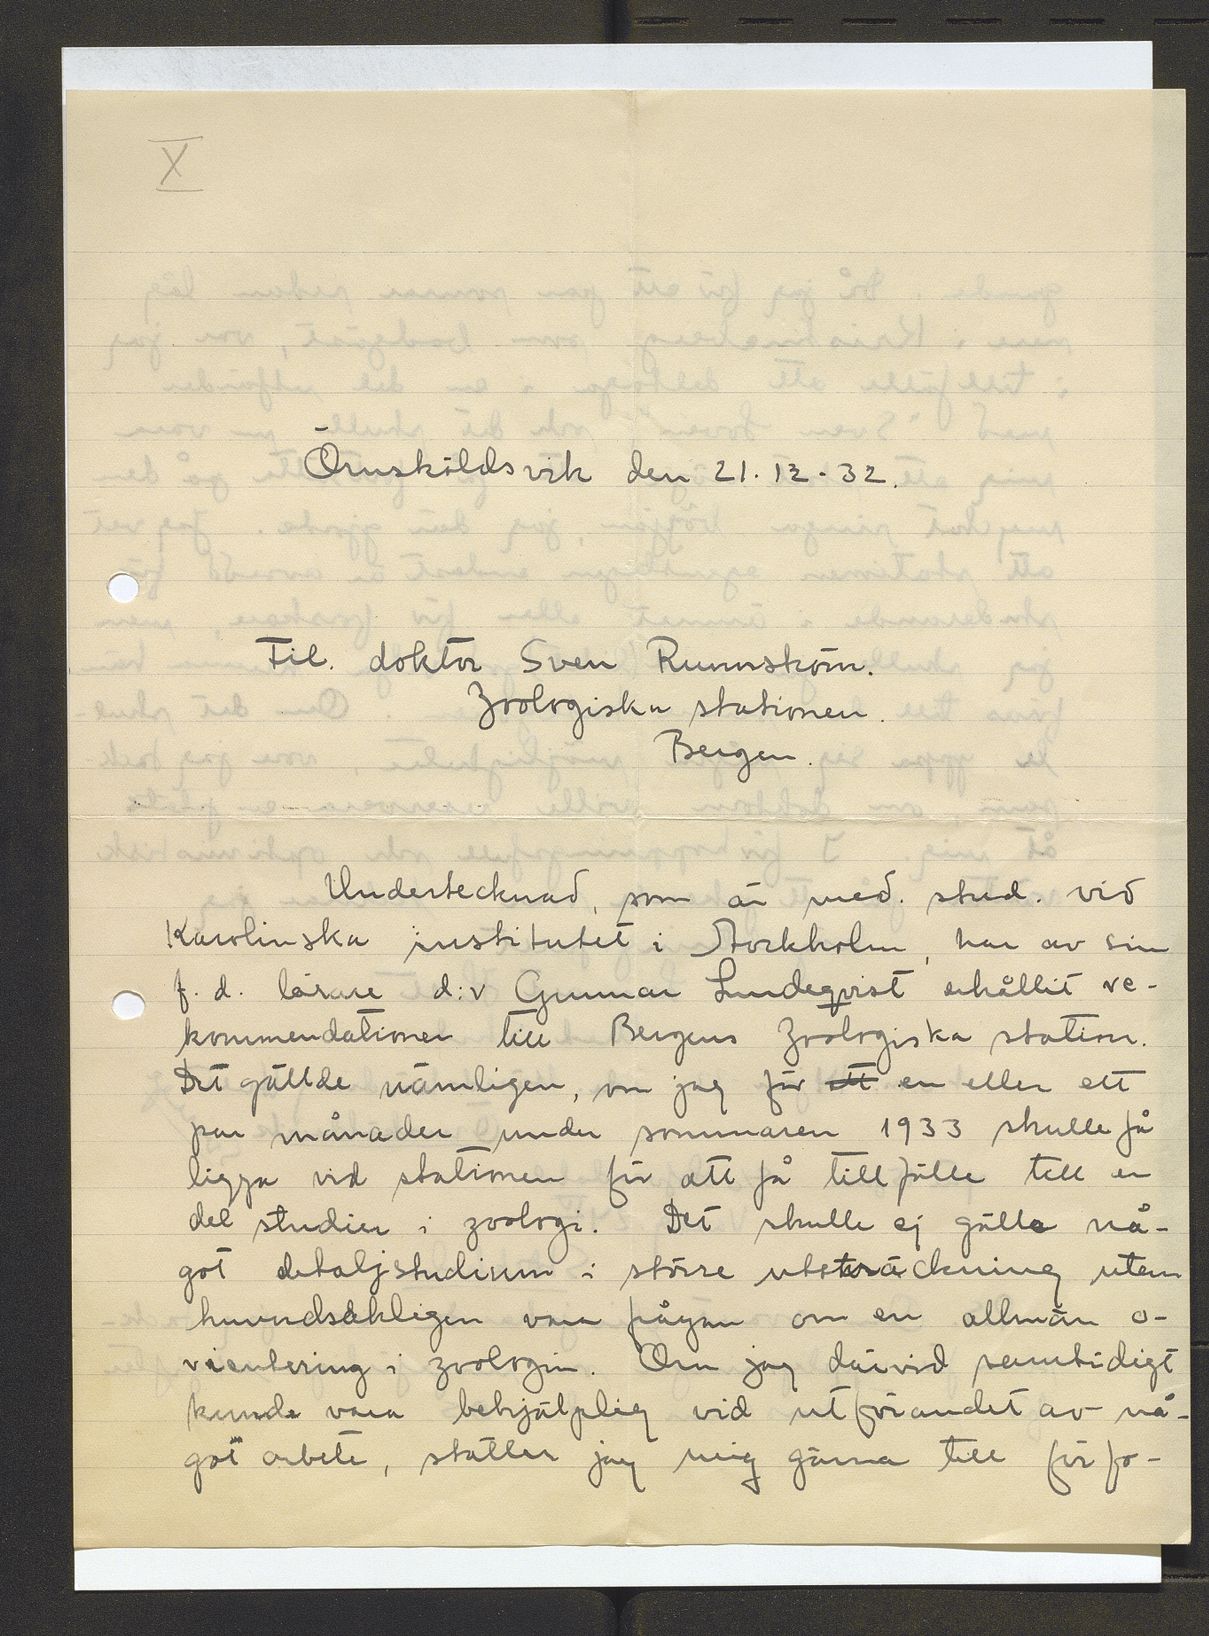 X
Örnsköldsvik den 21.12-32.
Fil. doktor Sven Runnström.
Zoologiska stationen.
Bergen.
Undertecknad, som är med. stud. vid
Karolinska institutet i Stockholm, har av sin
f. d. lärare d:r Gunnar Lindeqvist erhållit re-
kommendationer till Bergens Zoologiska station.
Det gällde nämligen, om jag för ett en eller ett
par månader under sommaren 1933 skulle få
ligga vid stationen för att få tillfälle till en
del studier i zoologi. Det skulle ej gälla nå-
got detaljstudium i större utsträckning utan
huvudsakligen vara frågan om en allmän o-
rientering i zoologin. Om jag därvid samtidigt
kunde vara behjälplig vid utförandet av nå-
got arbete, ställer jag mig gärna till förfo-